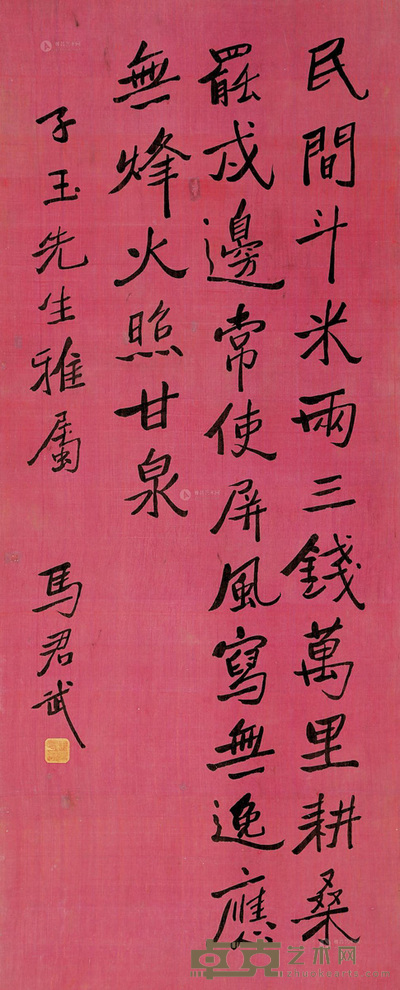 民間斗米兩三錢萬里耕桑
罷戍邊常使屏風寫無逸應
無烽火照甘泉
子玉先生雅屬 馬君武
卓克艺术网